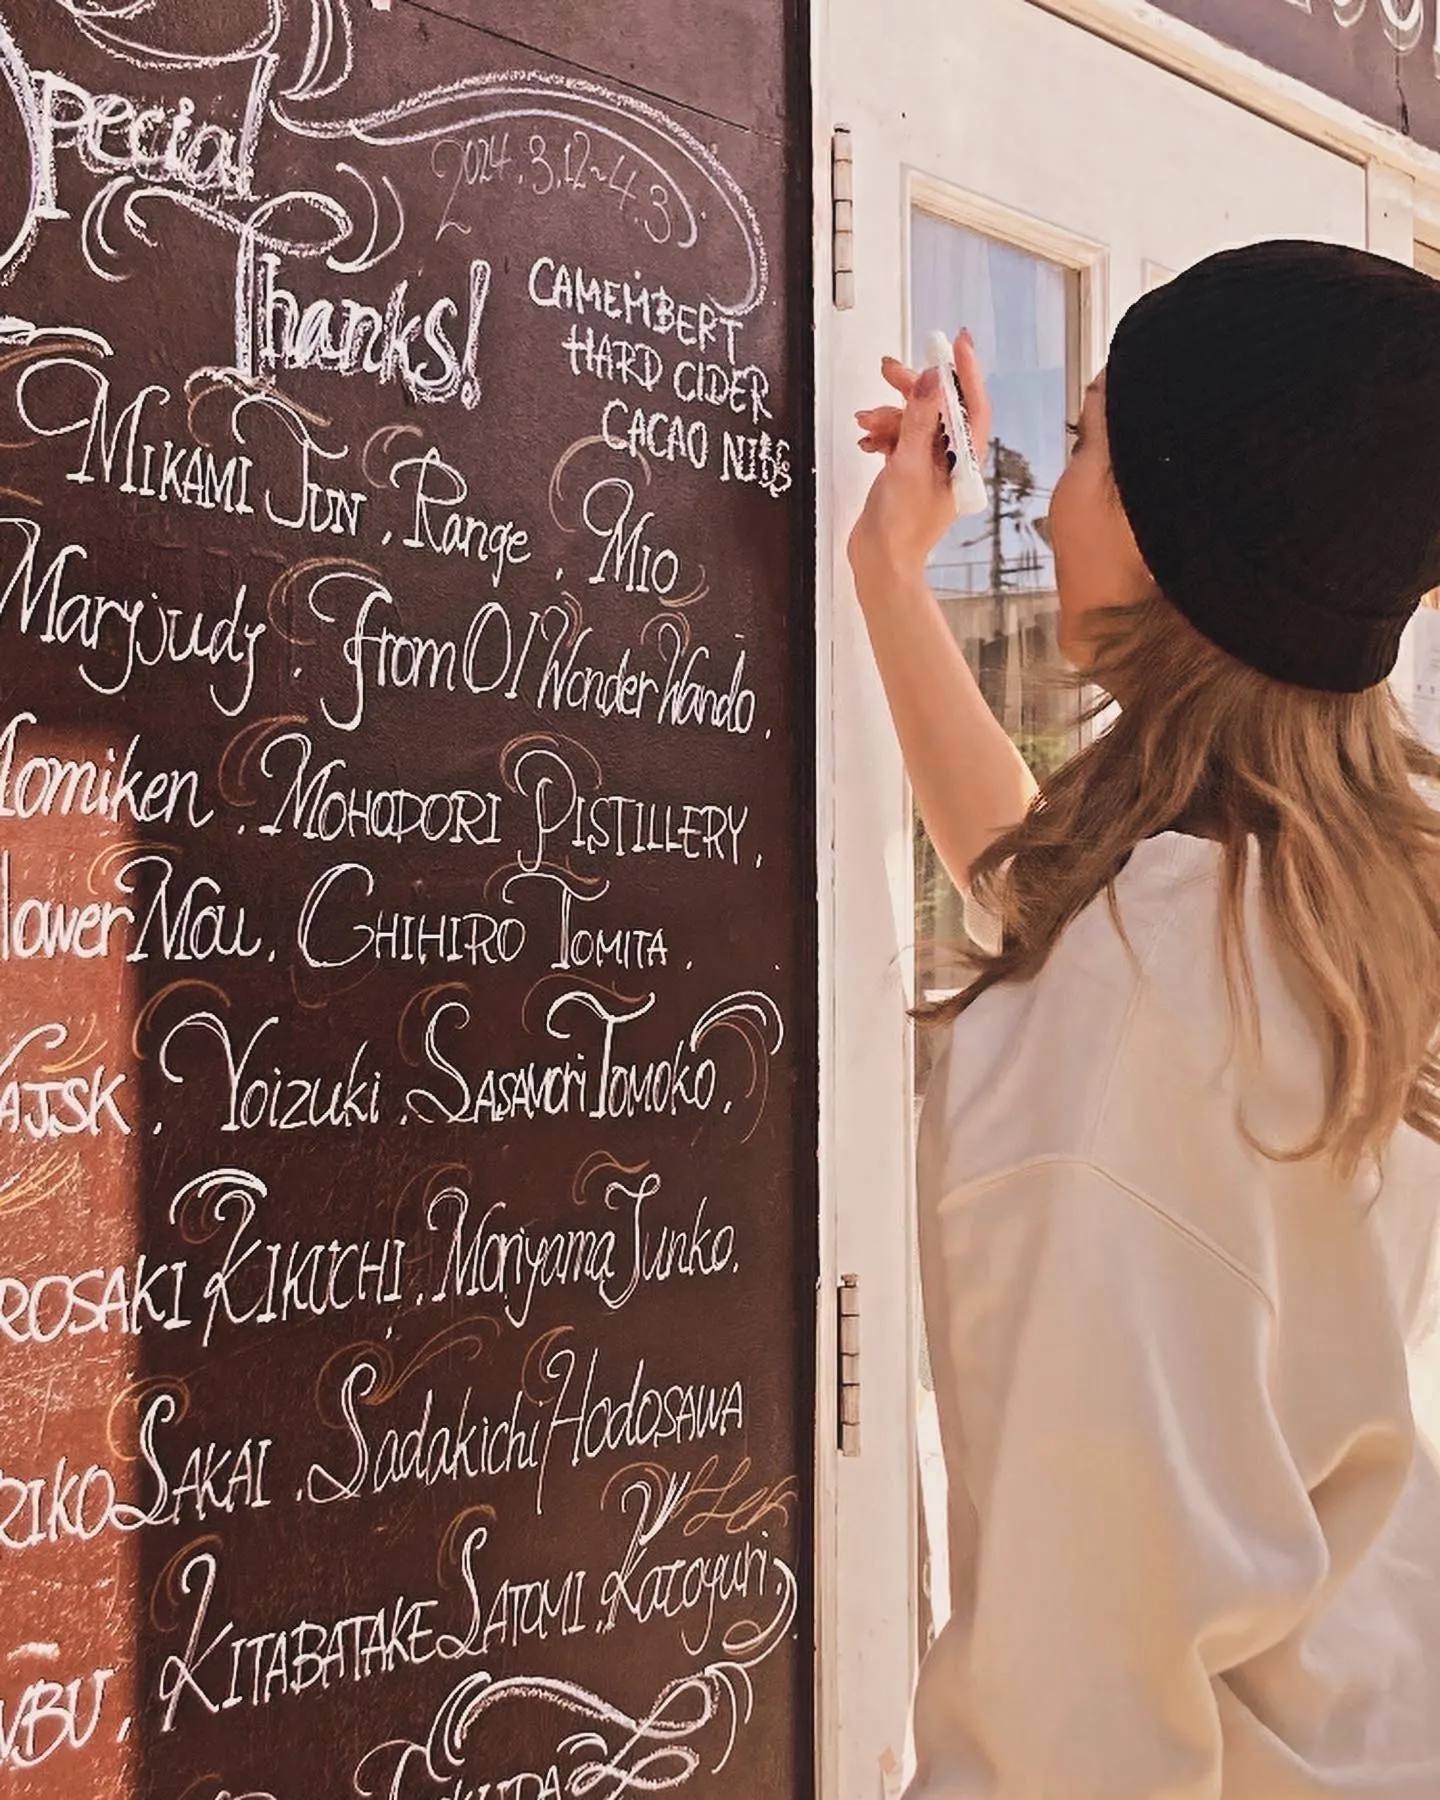 Special
2024.3.12~4.3
Thanks!
CAMEMBERT
HARD CIDER
CACAO NIBS
MIKAMI JUN, Range, MIO
Maryjudy, from 01 Wonder Wando,
omiken, MOHODORI DISTILLERY,
lower Mou, CHIHIRO TOMITA,
AJSK, Yoizuki, SASAMORI TOMOKO,
ROSAKI KIKUCHI, Moriyama Junko,
RIKO SAKAI, Sadakichi HODOSAWA
KITABATAKE SATOMI, Katoyuri,
BU,